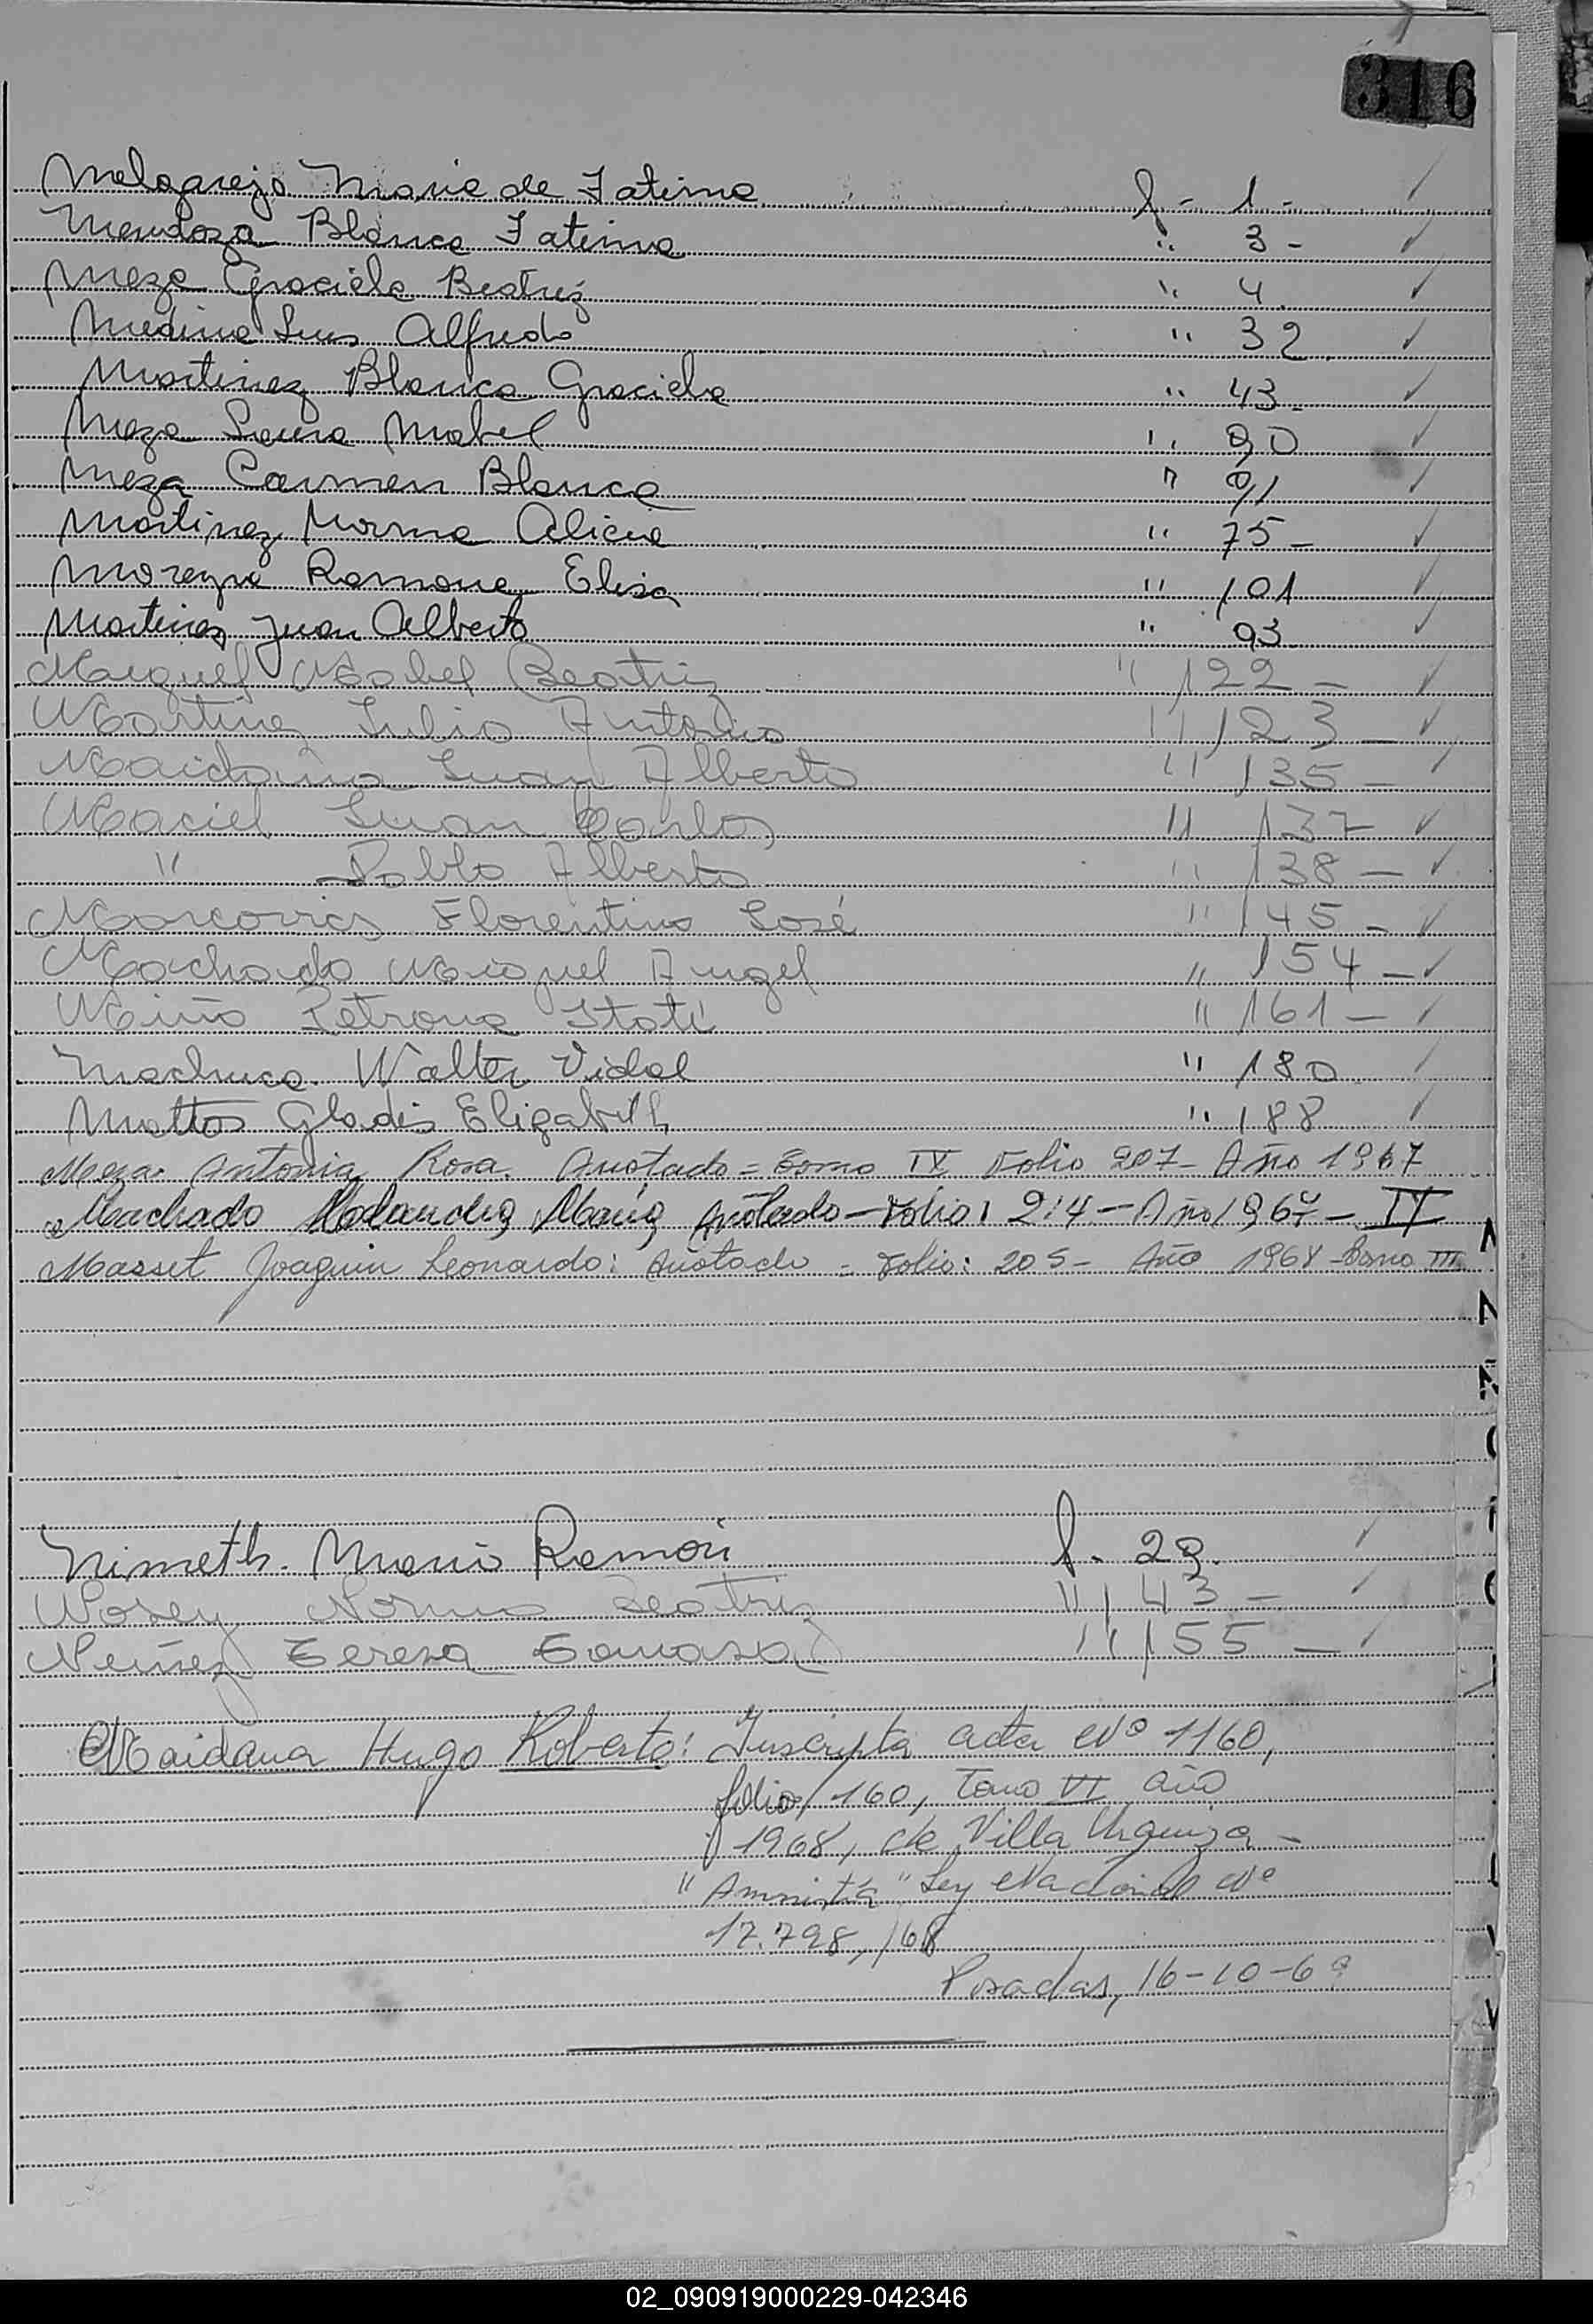 316
Melgarejo Maria de Fatima f - 1 - ✓
Mendoza Blanca Fatima " 3 - ✓
Meza Graciela Beatriz " 4. ✓
Medina Luis Alfredo " 32 ✓
Martinez Blanca Graciela " 43 - ✓
Meza Laura Mabel " 90 ✓
Meza Carmen Blanca " 91 ✓
Martinez Norma Alicia " 75 - ✓
Moreyra Ramona Elisa " 101 ✓
Martinez Juan Alberto " 93 ✓
Marquez Mabel Beatriz " 122 - ✓
Martinez Julio Antonio " 123 - ✓
Maidana Juan Alberto " 135 - ✓
Maciel Juan Carlos " 137 - ✓
" Pablo Alberto " 138 - ✓
Florentino José " 145 - ✓
Machado Miguel Angel " 154 - ✓
Miño Petrona Itatí " 161 - ✓
Machuca Walter Vidal " 180 ✓
Mattos Gladis Elizabeth " 188 ✓
Meza Antonia Rosa. Anotado = Tomo IV Folio 207 - Año 1967
Machado María Anotado - Folio: 214 - Año 1967 - IV
Masset Joaquin Leonardo: Anotado - Folio: 205 - Año 1968 - Tomo III
Nimeth. Mario Ramón f. 29. ✓
Norma Beatriz " 143 - ✓
Nuñez Teresa Tomasa " 155 - ✓
Maidana Hugo Roberto: Inscripta acta Nº 1160,
folio 160, Tomo VI año
1968, de Villa Urquiza -
"Amnistía" Ley Nacional Nº
17.798,/68
Posadas, 16-10-69
02_090919000229-042346